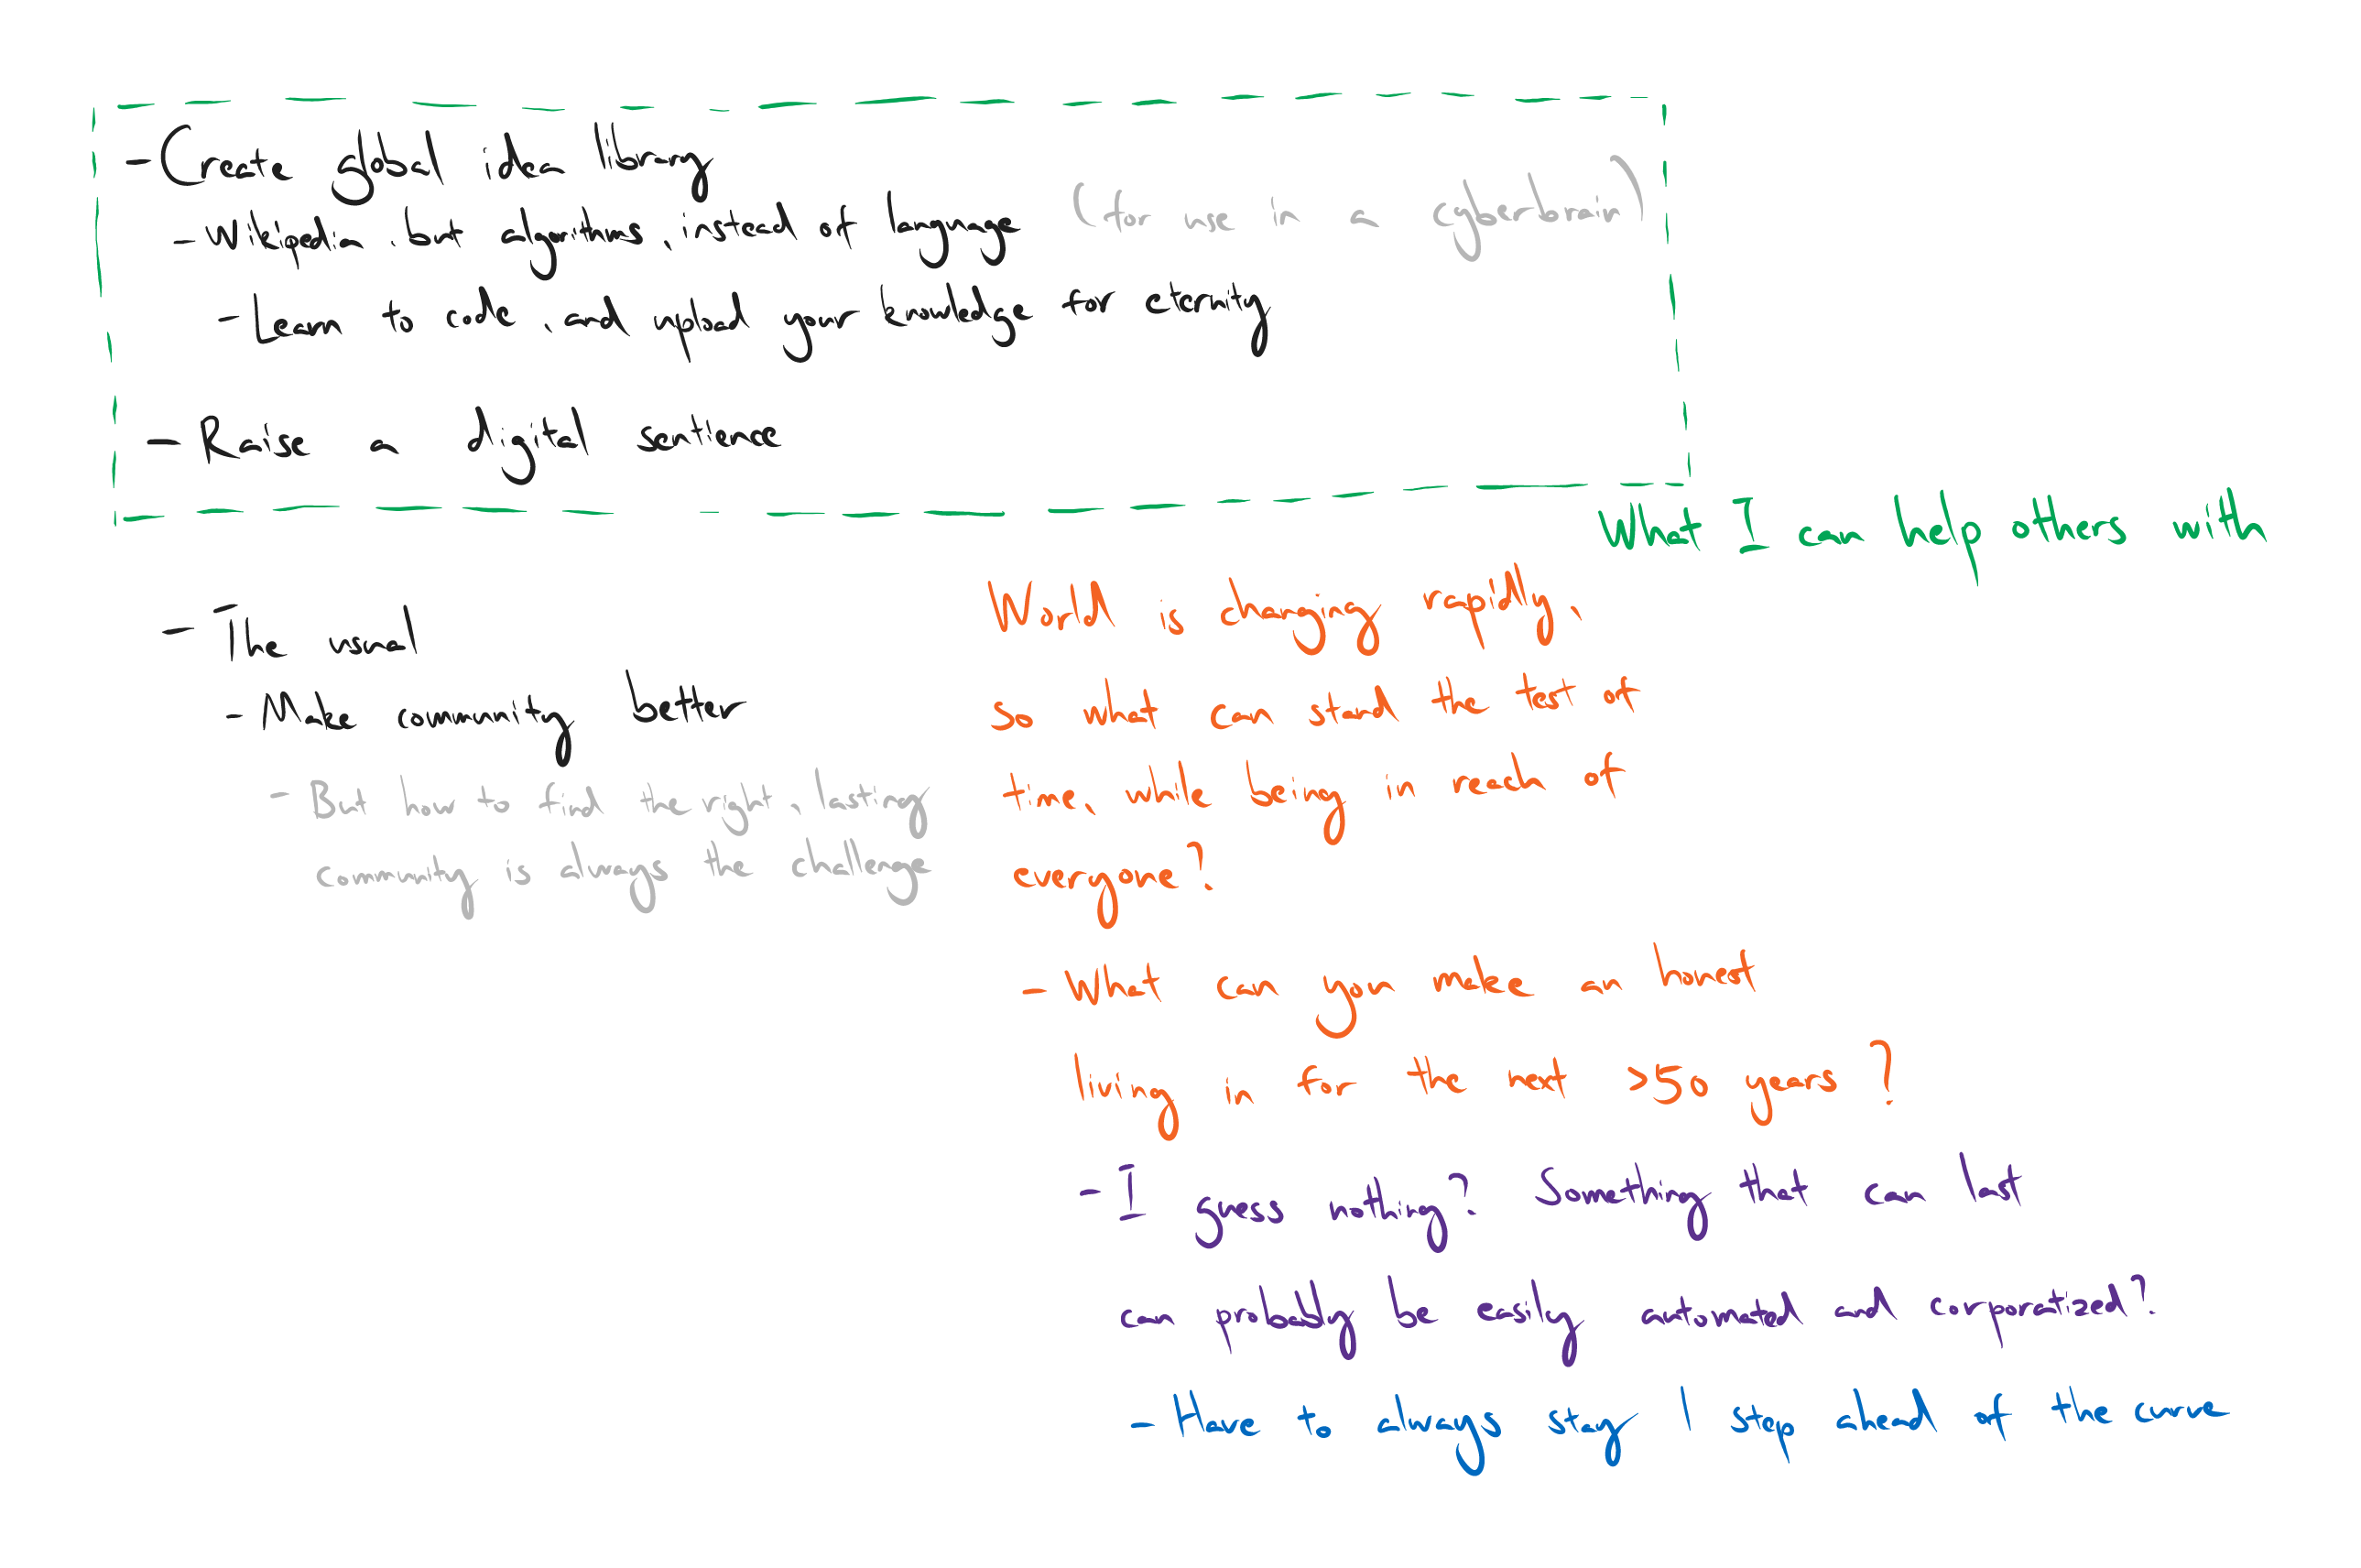 - Create global idea library
- Wikipedia, but algorithms, instead of language
(for me in a glherbrain)
- Learn to code, and upload your knowledge for eternity
- Raise a digital sentience
What I can help others with
- The usual
- Make community better
- But how to find the right, lasting
community is always the challenge
World is changing rapidly,
so what can stand the test of
time, while being in reach of
everyone?
- What can you make an honest
living in for the next >50 years?
- I guess nothing? Something that can last
can probably be easily automated and corporatized?
- Have to always stay 1 step ahead of the curve